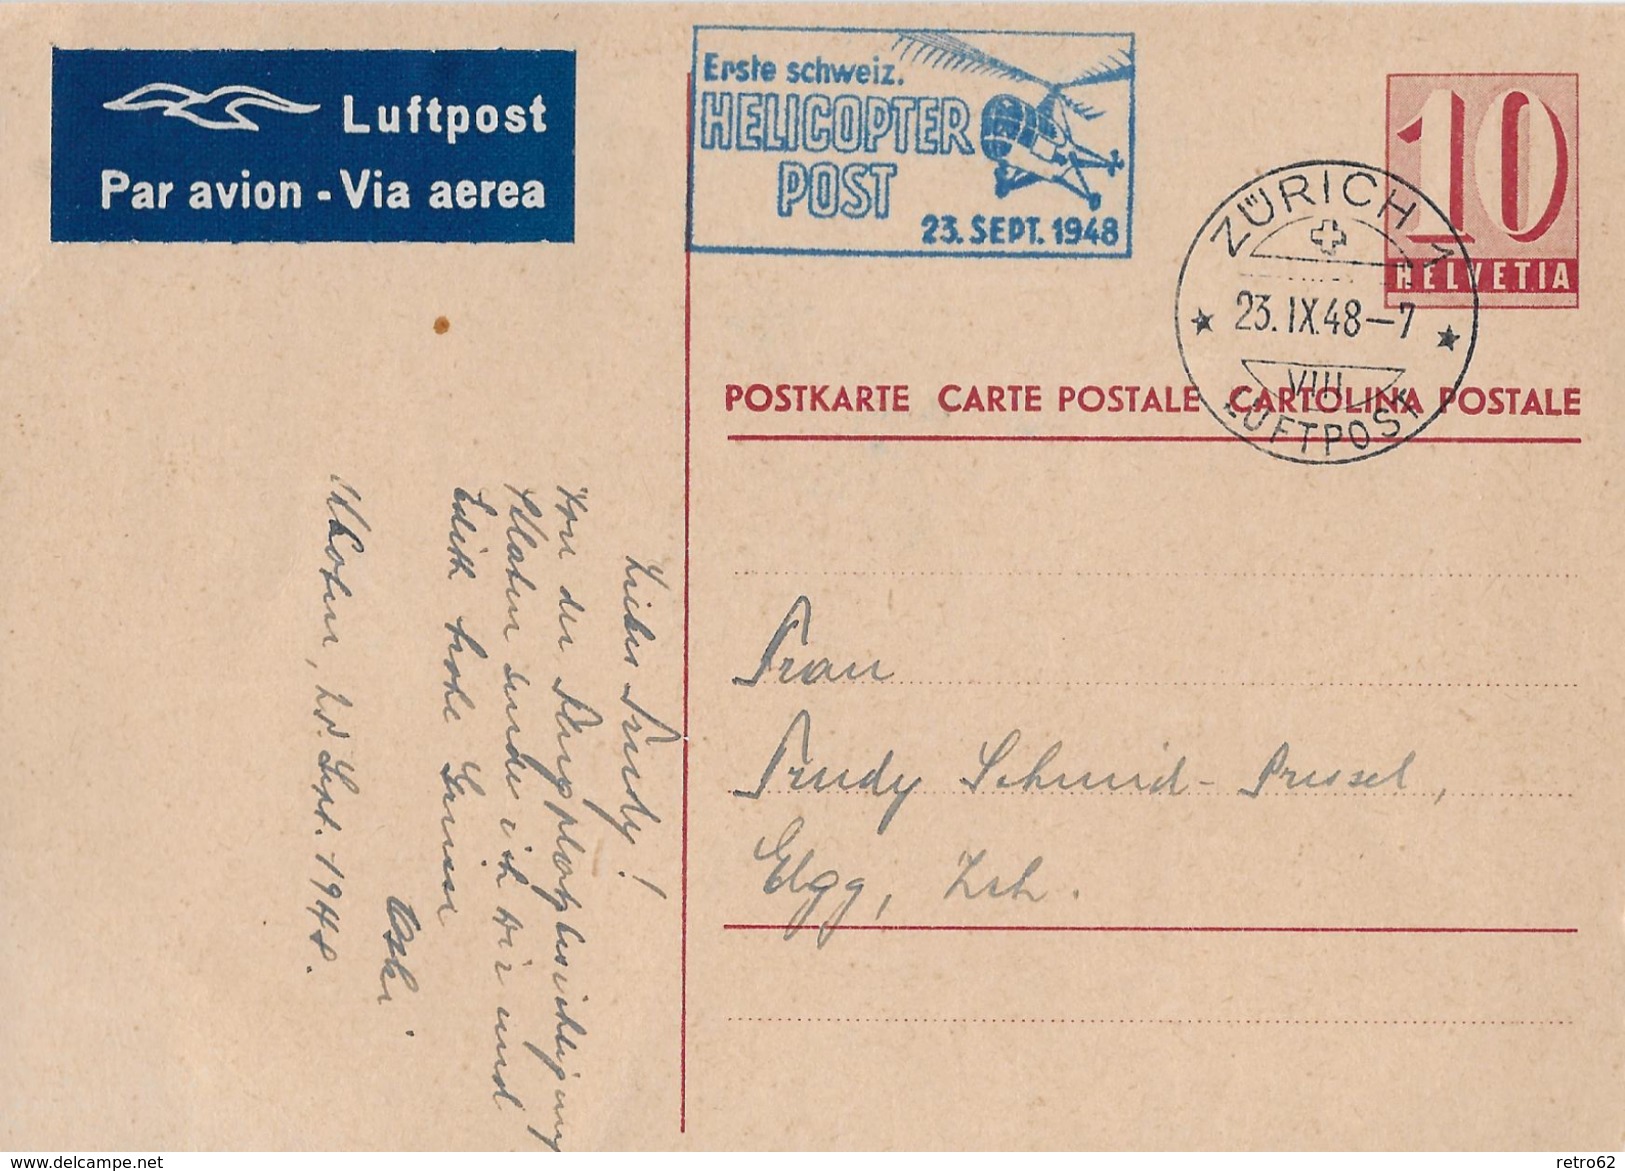 Luftpost
Par avion - Via aerea
Erste schweiz.
HELICOPTER
POST
23. SEPT. 1948
10
HELVETIA
ZÜRICH 1
23. IX. 48 — 7
VIII
LUFTPOST
POSTKARTE CARTE POSTALE CARTOLINA POSTALE
Frau
Trudy Schmid - Prussel,
Elgg, Zch.
Liebes Trudy!
Von der Flugplatzbesichtigung
Kloten sende ich dir und
Edith frohe Grüsse
Oski
Kloten, Sept. 1948.
Delcampe.net
retro62